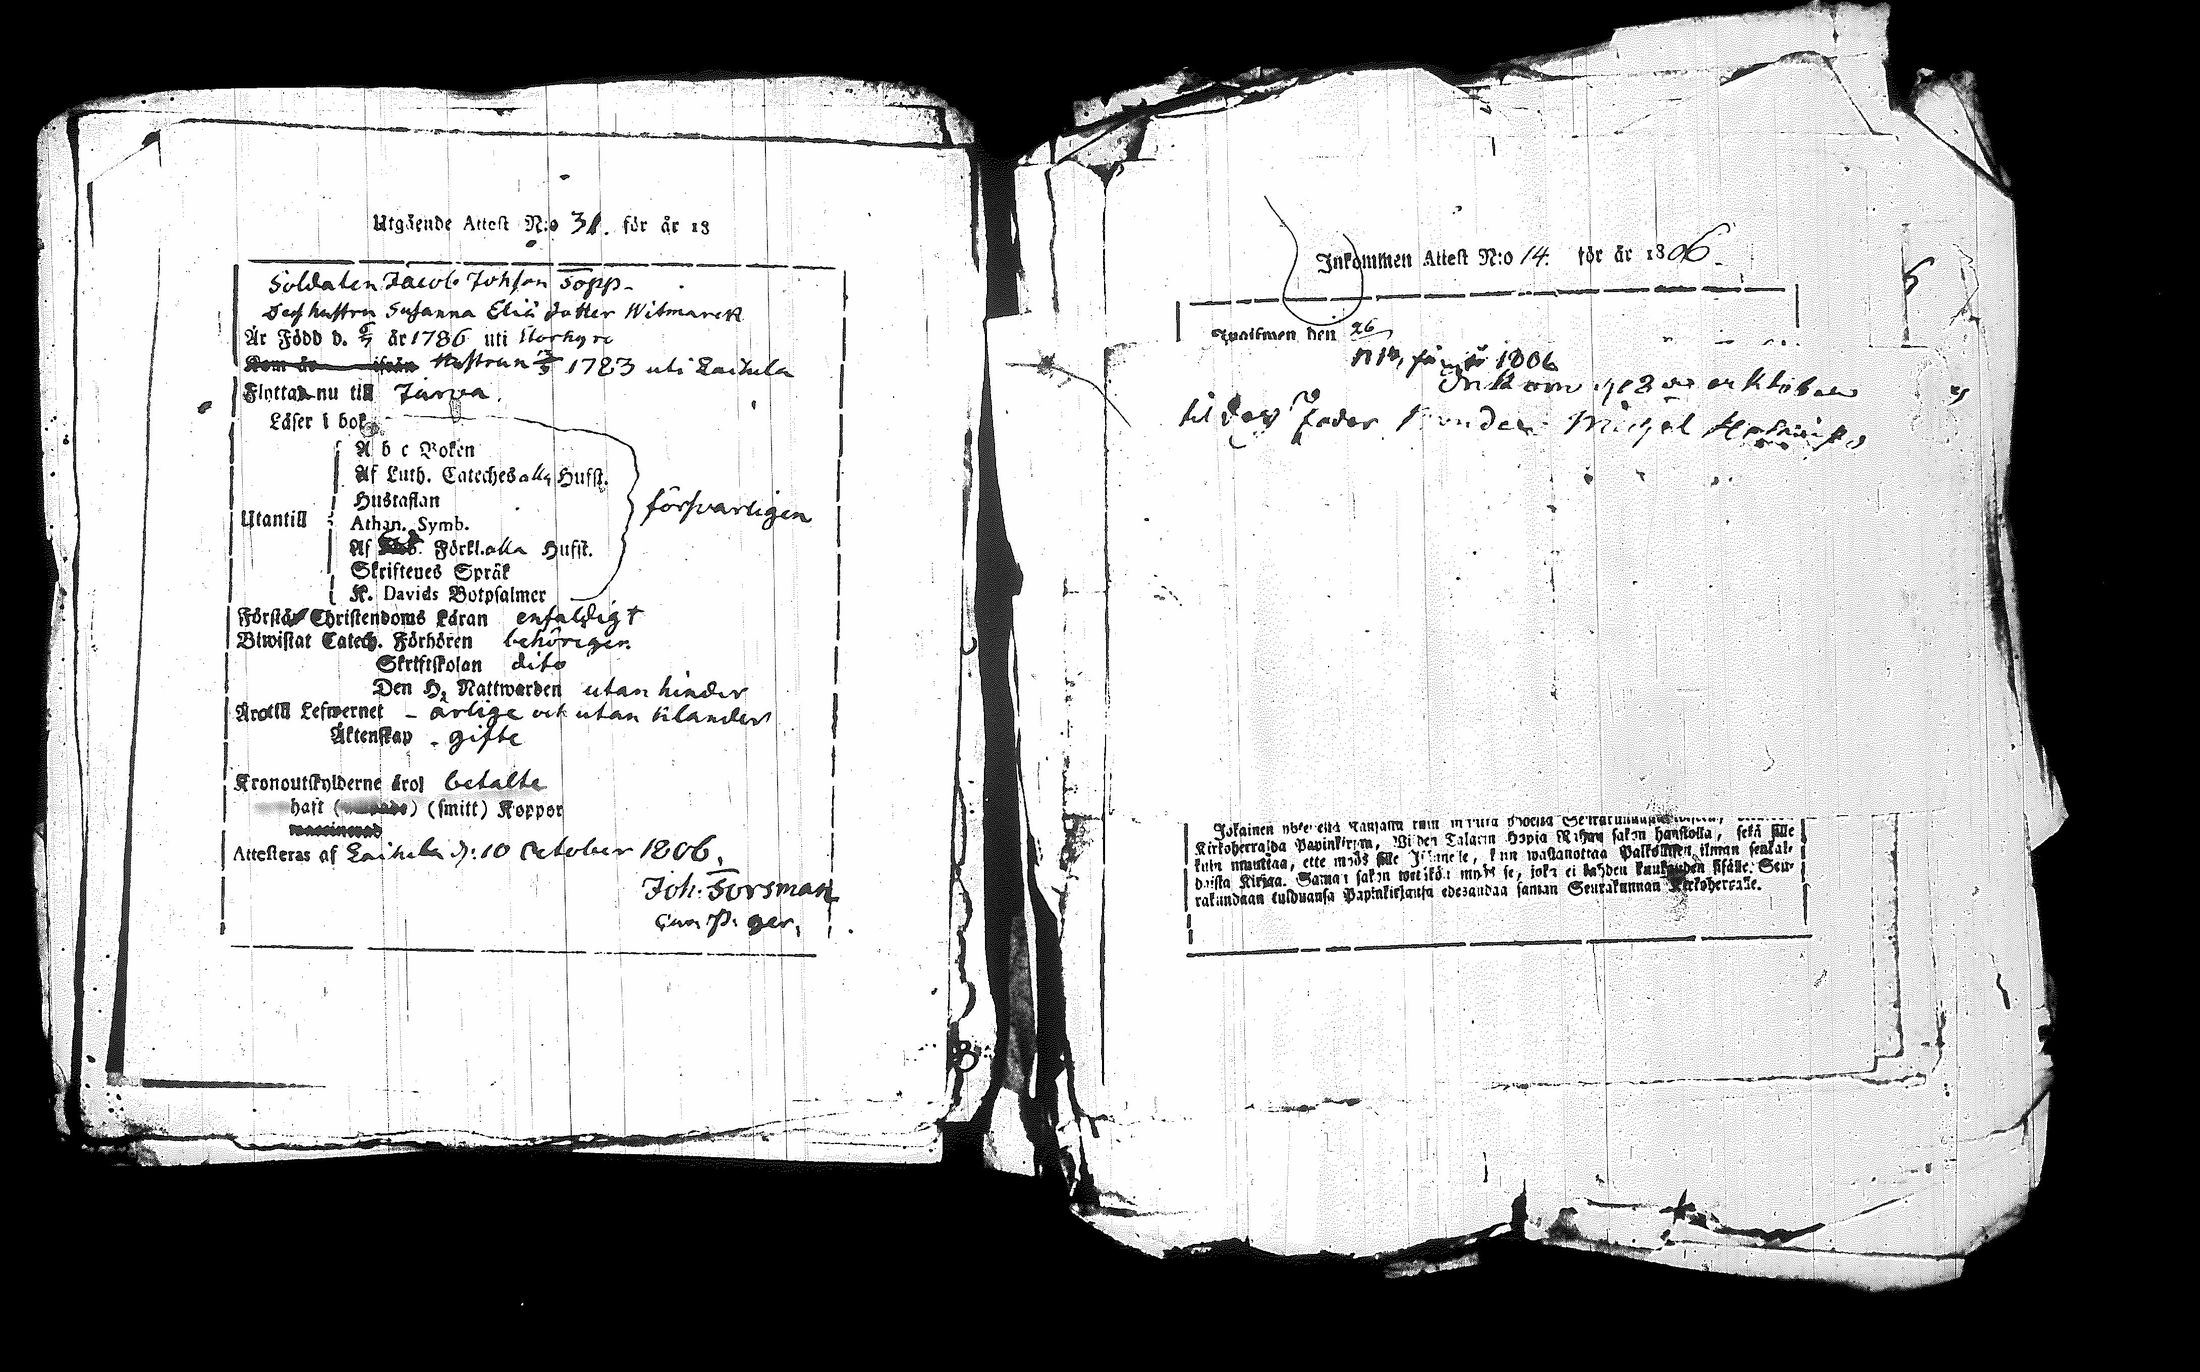 Utgående Attest N:o 31. för år 18
Soldaten Jacob Johsson Topp.
Dess hustru Susanna Eliæ dotter Witmarck
Är Född d. 6/7 år 1786 uti Storkyro
Kom år ifrån Hustrun 1783 uti Laihela
Flyttar nu till Jurva.
Läser i bok
A b c Boken
Af Luth. Cateches alla Hufst.
Hustaflan
Utantill
Athan. Symb.
Af Förkl. alla Hufst.
Skriftenes Språk
K. Davids Botpsalmer
försvarligen
Förstår Christendoms Läran enfaldigt
Biwistat Catech. Förhören behörigen
Skriftskolan dito
Den H. Nattwarden utan hinder
Äro till Lefwernet - ärlige och utan klander
Äktenskap - gifte
Kronoutskylderne äro betalte
haft (smitt) Koppor
Attesteras af Laihela d: 10 October 1806.
Joh. Forsman
Inkommen Attest N:o 14. för år 1806.
den 26
1806
Inkom
til dess Fader Michel
Jokainen
Kirkoherralda Papinkirjan, Wiiden Talarin Hopia Rahan sakon haastolla, sekä sille
kuin muuttaa, ette myös sille Isännelle, kuin wastanottaa Palkollisen ilman senkal-
daista Kirjaa. Saman sakon wetikön myös se, joka ei kahden kuukauden sisälle Seu-
rakundaan tulduansa Papinkirjansa edesandaa saman Seurakunnan Kirkoherralle.